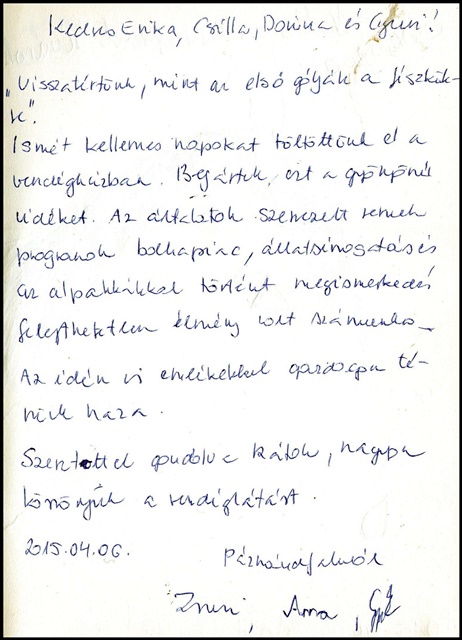 Kedves Erika, Csilla, Dorina és Gyuri!
„Visszatértünk, mint az első gólyák a fészkük-
be".
Ismét kellemes napokat töltöttünk el a
vendégházban. Bejártuk ezt a gyönyörű
vidéket. Az általatok szervezett remek
programok bolhapiac, állatsimogatás és
az alpakkákkal történt megismerkedés
felejthetetlen élmény volt számunkra.
Az idén új emlékekkel gazdagon té-
rünk haza.
Szeretettel gondolunk Rátok, nagyon
köszönjük a vendéglátást.
2015.04.06.
Pázmándfaluról
Zsuzsi, Anna,